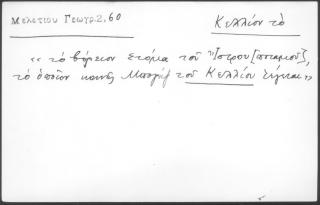 Μελετίου Γεωγρ. 2, 60
Κελλίον τὸ
« τὸ βόρειον στόμα τοῦ Ἴστρου [ποταμοῦ],
τὸ ὁποῖον κοινῶς Μπογάζ τοῦ Κελλίου λέγεται »